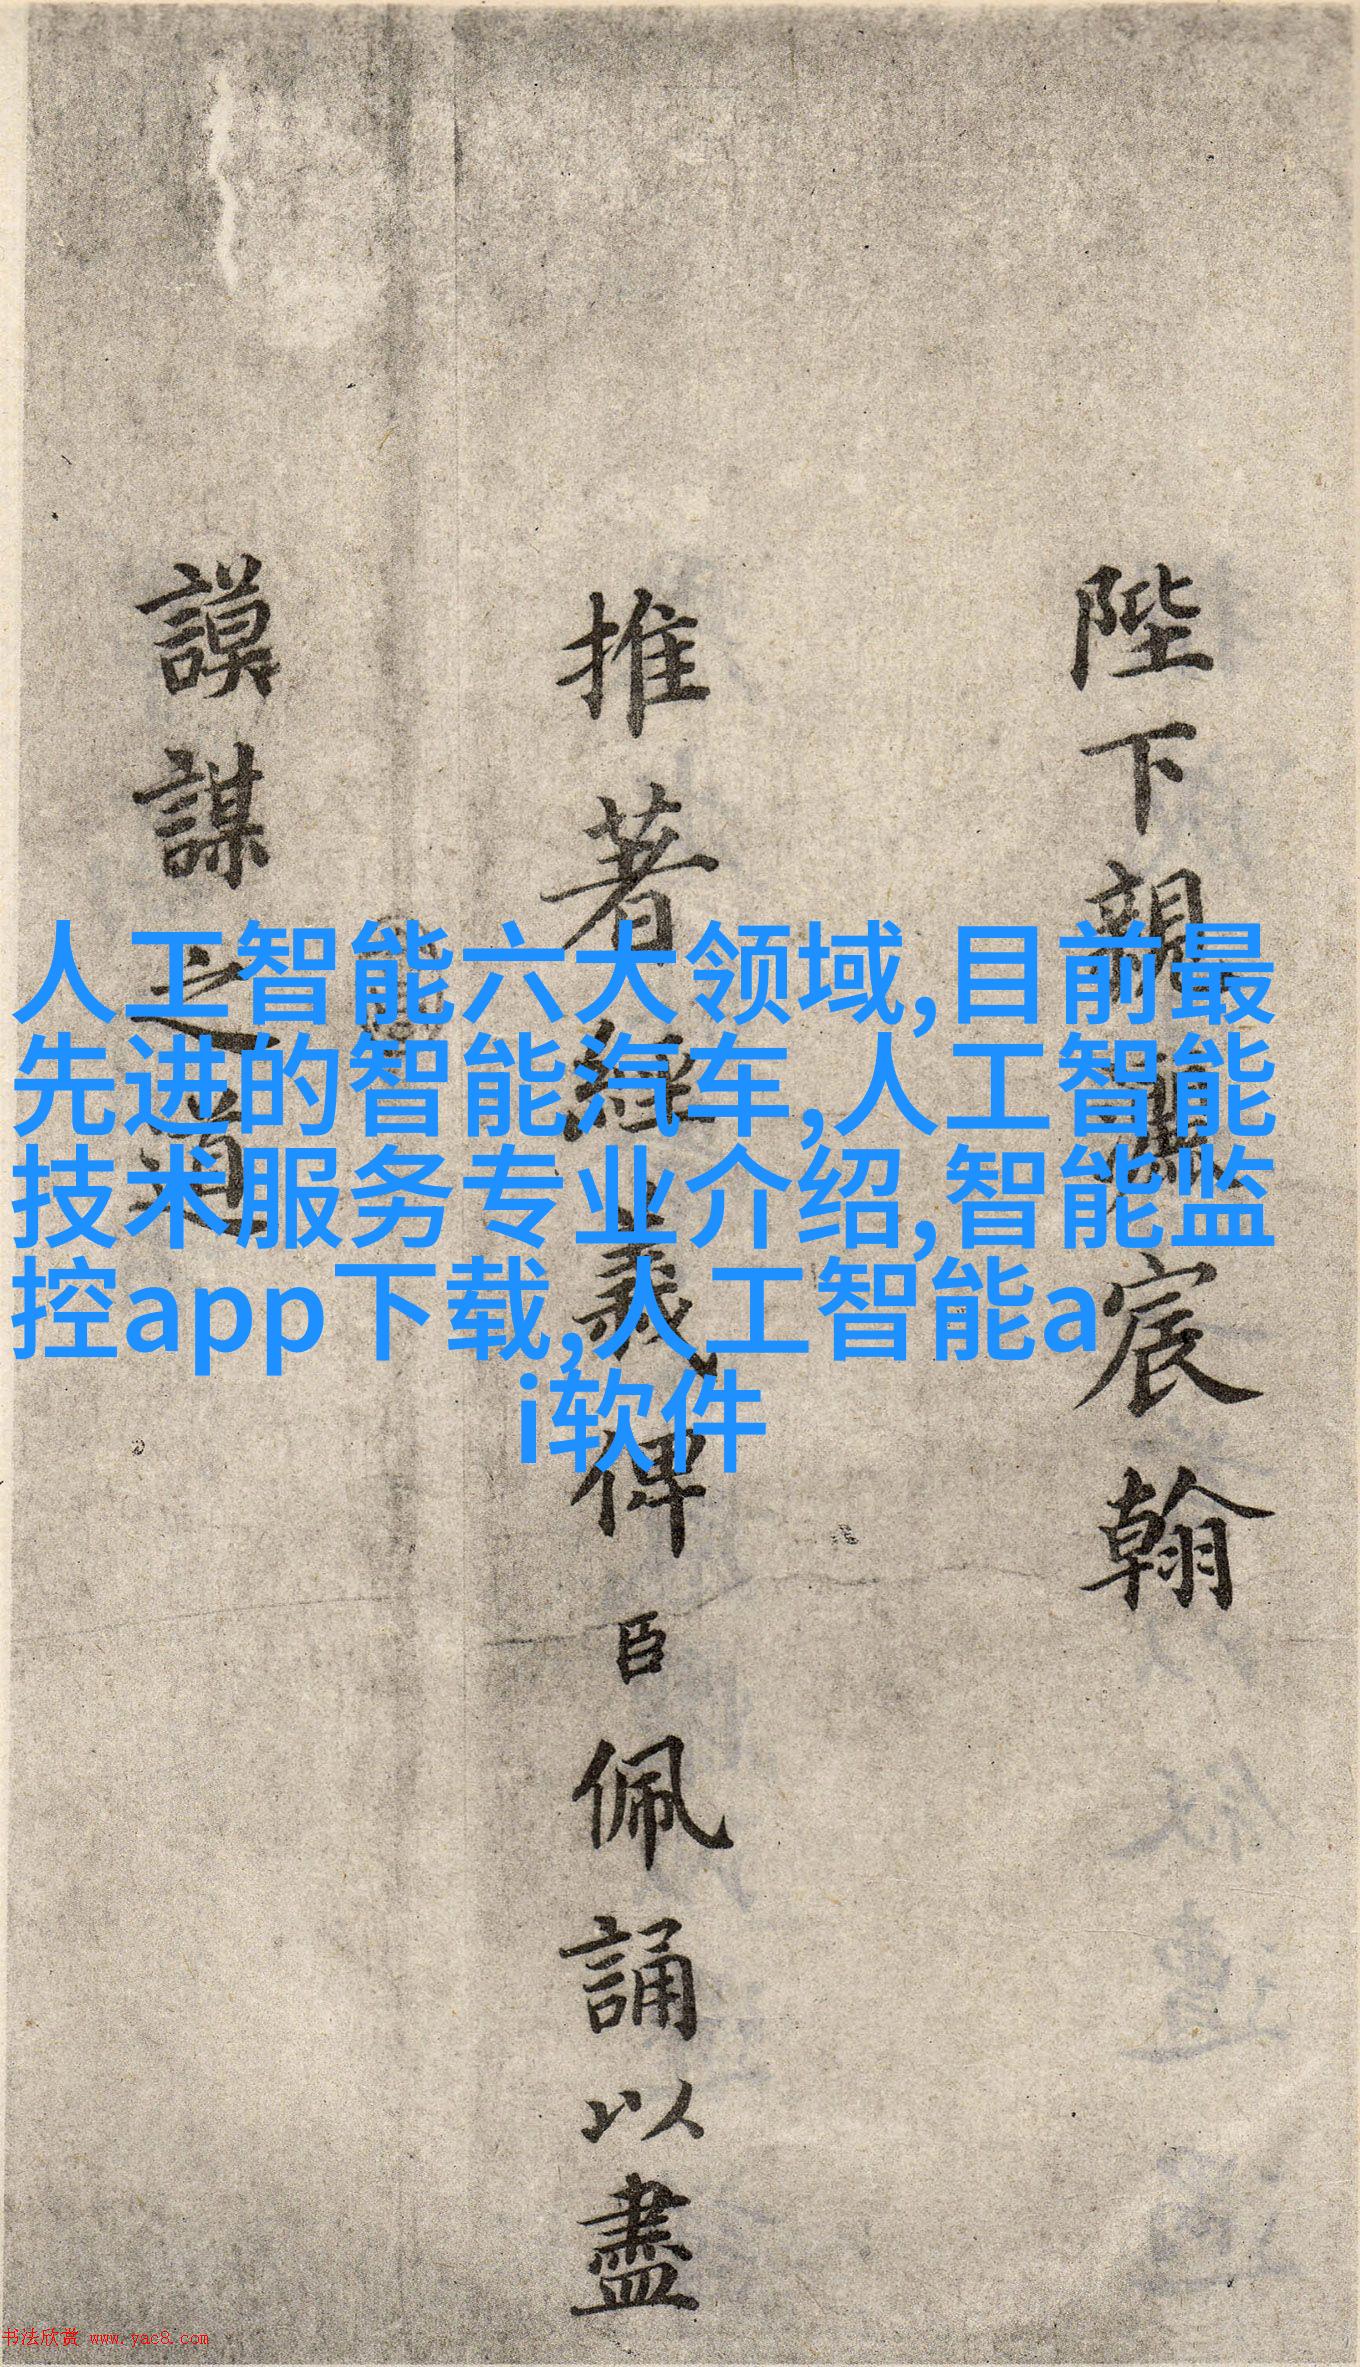 陛下親灑宸翰
推著經義俾臣佩誦以盡
謨謀之道
人工智能六大领域,目前最
先进的智能汽车,人工智能
技术服务专业介绍,智能监
控app下载,人工智能a
i软件
书法欣赏 www.yac8.com